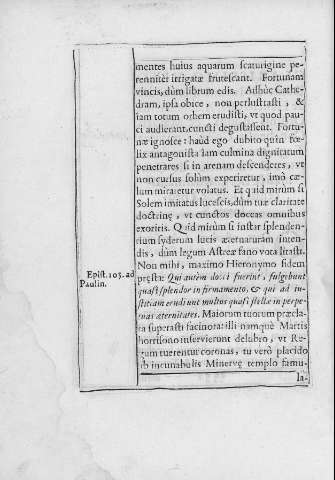 mentes huius aquarum scaturigine pe-
rennitèr irrigatæ frutescant. Fortunam
vincis, dùm librum edis. Adhùc Cathe-
dram, ipsa obice, non perlustrasti, &
iam totum orbem erudisti, vt quod pau-
ci audierant, cuncti degustassent. Fortu-
næ ignosce: haùd ego dubito quin fœ-
lix antagonista iam culmina dignitatum
penetrares si in arenam descenderes, vt
non cursus solùm experiretur, imò cæ-
lum miraretur volatus. Et quid mirùm si
Solem imitatus lucescis, dùm tuæ claritate
doctrinę, vt cunctos doceas omnibus
exoritis. Quid mirùm si instar splenden-
tium syderum lucis æternaturam inten-
dis, dùm legum Astreæ fano vota litasti.
Non mihi, maximo Hieronymo fidem
Epist. 103. ad
Paulin.
pręsta: Qui autèm docti fuerint, fulgebunt
quasi splendor in firmamento, & qui ad iu-
stitiam erudiunt multos quasi stellæ in perpe-
tuas æternitates. Maiorum tuorum præcla-
ra superasti facinora: illi namquè Martis
horrisono inservierunt delubro, vt Re-
gum tuerentur coronas, tu verò placido
ab incunabulis Minervę templo famu-
la-